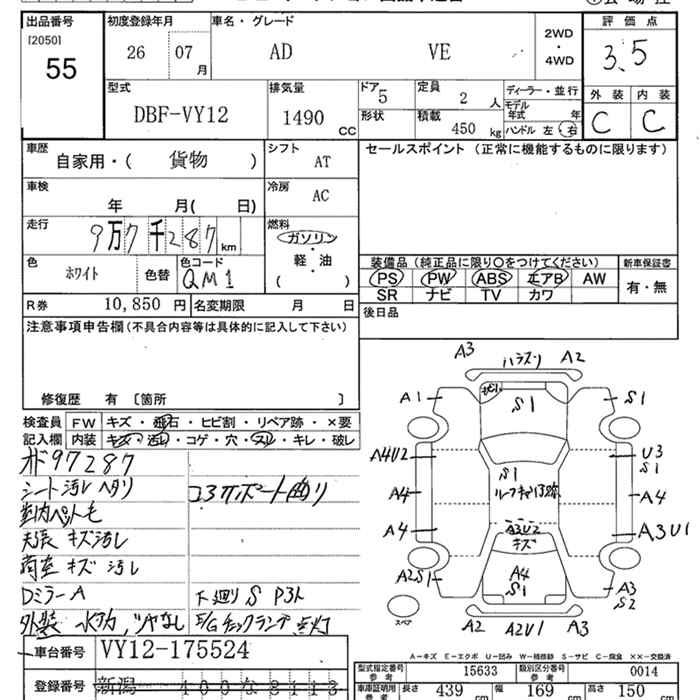 出品番号 初度登録年月 車名・グレード 評価点
[2050]
55 26 07月 AD VE 2WD・4WD 3.5
型式 排気量 ドア 定員 ディーラー・並行 外装 内装
DBF-VY12 1490 CC 5 2人 モデル年式 年 C C
形状 積載 450 kg ハンドル 左・右
車歴 自家用・( 貨物 ) シフト AT セールスポイント (正常に機能するものに限ります)
車検 年 月( 日) 冷房 AC
走行 9万7千287km 燃料 ガソリン・軽・油 ( )
色 ホワイト 色替 色コード QM1
装備品 (純正品に限り○をつけてください) 新車保証書
PS PW ABS エアB AW 有・無
SR ナビ TV カワ
R券 10,850円 名変期限 月 日 後日品
注意事項申告欄(不具合内容等は具体的に記入して下さい)
修復歴 有 [箇所 ]
検査員 FW キズ・飛石・ヒビ割・リペア跡・×要
記入欄 内装 キズ・汚レ・コゲ・穴・スレ・キレ・破レ
97287
シート汚レ ヘタリ コアサポート曲リ
車内ペット毛
天張 キズ汚レ
荷室 キズ 汚レ
Dミラー A 下廻り S
外装 水アカ,ツヤなし E/Gチェックランプ 点灯
A3 A2
A1 S1 S1
A4U2 S1 U3 S1
A4 A4
A4 A3U2 キズ A3U1
A2S1 A4 S1 A3 S2
スペア
A2 A2U1 A3
A−キズ E−エクボ U−凹み W−補修跡 S−サビ C−腐食 XX−交換済
車台番号 VY12-175524
型式指定番号 参考 15633 類別区分番号 参考 0014
登録番号 新潟 400 な 8113
車庫証明用 参考 長さ 439 cm 幅 169 cm 高さ 150 cm